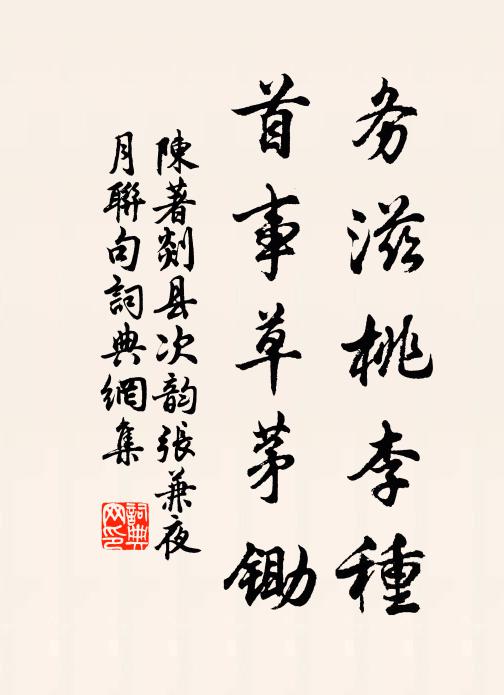 务滋桃李種
首事草茅鋤
陳著剡县次韵張兼夜
月聯句詞典網集
詞典网印